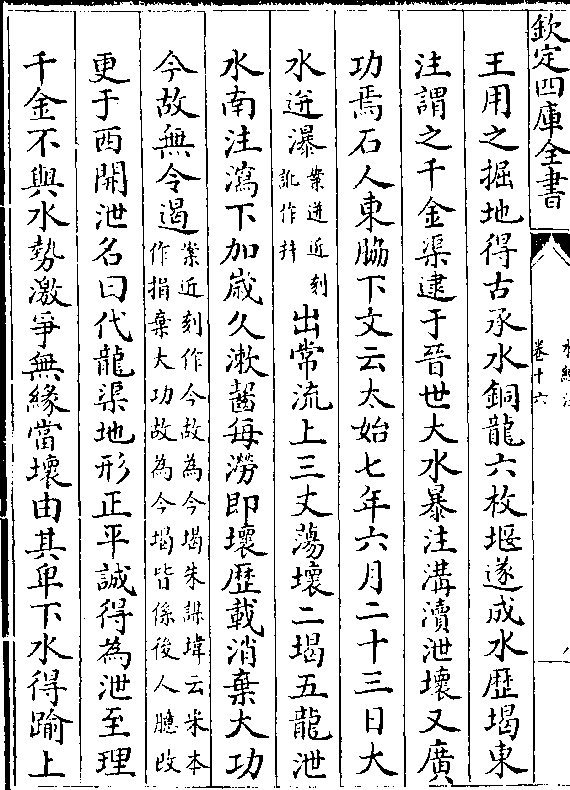 欽定四庫全書
水經注
卷十六
王用之掘地得古承水銅龍六枚堰遂成水歷堨東
注謂之千金渠逮于晉世大水暴注溝瀆泄壞又廣
功焉石人東脇下文云太始七年六月二十三日大
水迸瀑案迸近刻訛作并出常流上三丈蕩壞二堨五龍泄
水南注瀉下加歲久漱齧每澇即壞歷載消棄大功
今故無令遏案近刻作今故為今堨朱謀㙔云宋本作捐棄大功故為今堨皆係後人臆改
更于西開泄名曰代龍渠地形正平誠得為泄至理
千金不與水勢激爭無緣當壞由其卑下水得踰上